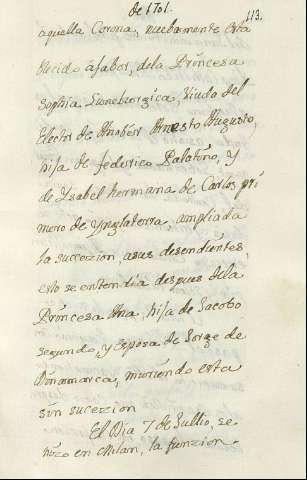 de 1701.
113.
aquella Corona, nuebamente esta
blecido áfabor, dela Princesa
Sophia Luneburgica, Viuda del
Elector de Anober Ernesto Augusto,
hija de federico Palatino, y
de Ysabel hermana de Carlos pri
mero de Ynglaterra, ampliada
la succesion, asus desendientes,
esto se entendia despues dela
Princesa Ana, hija de Jacobo
segundo, y Esposa de Jorge de
Dinamarca, muriendo esta
sin sucezion
El Dia 7 de Jullio, se
hizo en Milan, la funzion.